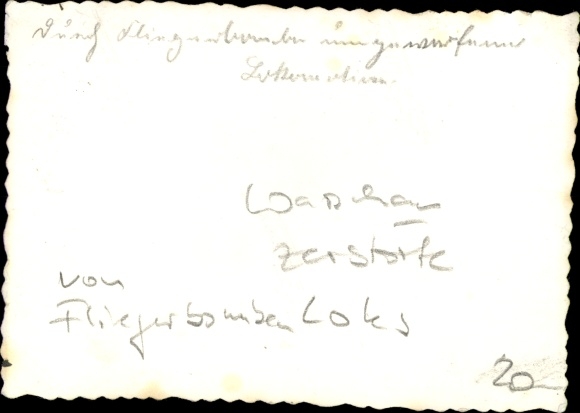 Durch Fliegerbombe umgeworfene
Lokomotive.
Warschau
zerstörte
von
Fliegerbomben Loks
20